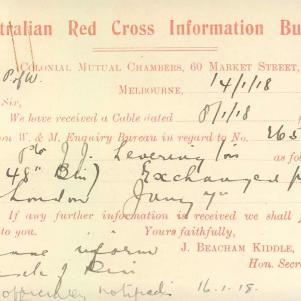 tralian Red Cross Information Bu
Colonial Mutual Chambers, 60 Market Street,
P of W.
Melbourne, 14/1/18
Sir,
We have received a Cable dated 8/1/18
on W. & M. Enquiry Bureau in regard to No. 265
Pte J. J. Levering ton as fo
48th Bn) Exchanged
London Jany 7th
If any further information is received we shall
to you. Yours faithfully,
inform J. Beacham Kiddle,
Hon. Secr
officially notified 16.1.18.